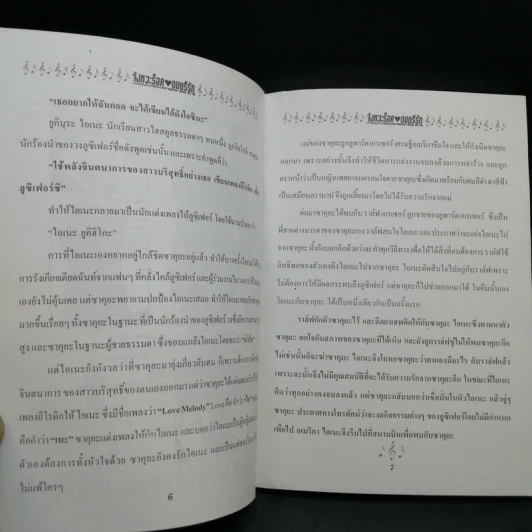 จังหวะร็อค♥ดนตรีรัก
"เธออยากให้ฉันกอด จะได้เขียนได้ดั่งใจซินะ"
ยูคิมุระ ไอเนะ นักเรียนสาวไฮสคูลธรรมดาๆ คนหนึ่ง ถูกใจโกคิ ซาคุยะ
นักร้องนำของวงลูซิเฟอร์ชื่อดังพูดเช่นนั้น และเพราะคำพูดที่ว่า
"ใช้พลังจินตนาการของสาวบริสุทธิ์อย่างเธอ เขียนเพลงให้กับ
ลูซิเฟอร์ซิ"
ทำให้ไอเนะกลายมาเป็นนักแต่งเพลงให้ลูซิเฟอร์ โดยใช้นามปากกาว่า
"ไอเนะ ยูคิฮิโกะ"
การที่ไอเนะเองอยากอยู่ใกล้ชิดซาคุยะอยู่แล้ว ทำให้บางครั้งไอเนะได้
การรังเกียจเดียดฉันท์จากแฟนๆ ที่คลั่งไคล้ลูซิเฟอร์และผู้ร่วมงานในวงการที่
เองยังไม่คุ้นเคย แต่ซาคุยะพยายามปกป้องไอเนะเสมอ ทำให้ไอเนะ
มากขึ้นเรื่อยๆ ทั้งซาคุยะในฐานะ ที่เป็นนักร้องนำของลูซิเฟอร์วงซึ่งมี
สูง และซาคุยะในฐานะผู้ชายธรรมดา ซึ่งชอบแกล้งไอเนะ
แต่ไอเนะก็ยังกังวลว่าที่ซาคุยะมายุ่งเกี่ยวกับตน ก็เพราะต้องการ
จินตนาการ ของสาวบริสุทธิ์ของตนเองออกมา แต่ว่าซาคุยะได้แต่ง
เพลงอีโรติกให้ ไอเนะ ซึ่งมีชื่อเพลงว่า "Love Melody" Love คือ คำว่า
คือคำว่า "เนะ" ซาคุยะแต่งเพลงให้กับไอเนะ และบอกว่าไอเนะเป็นผู้หญิง
ตัวเองต้องการทั้งหัวใจด้วย ซาคุยะยังคงรักไอเนะ และเป็น
ไม่แพ้ใครๆ
6
จังหวะร็อค♥ดนตรีรัก
แม่ของซาคุยะถูกลูฟาร์ดเกรเซอร์ เศรษฐีอเมริกาขืนใจ และให้กำเนิดซาคุยะ
ออกมา เพราะอย่างนั้นจึงทำให้ชีวิตการแต่งงานจบลงด้วยการหย่าร้าง และถูก
ตราหน้าว่าเป็นหญิงแพศยาจนตรอมใจตาย ซาคุยะซึ่งเกิดมาพร้อมกับผมสีดำตาสีฟ้า
เป็นเสมือนตราบาป จึงถูกเลี้ยงมาโดยไม่ได้รับความรักจากแม่
ต่อมาซาคุยะ ได้พบกับวาล์ฟเกรเซอร์ ลูกชายของลูฟาร์ดเกรเซอร์ ซึ่งเป็น
พี่ชายต่างมารดาของซาคุยะเอง วาล์ฟสนใจไอเนะ และประกาศว่าจะแย่งไอเนะไป
จากซาคุยะ ทั้งยังบอกอีกด้วยว่าจะทำทุกวิถีทาง เพื่อให้ได้สิ่งที่ตนต้องการ วาล์ฟใช้
อิทธิพลของตัวเองดึงไอเนะไปจากซาคุยะ ไอเนะคิดสินใจไปอยู่กับวาล์ฟเพราะ
ไม่ต้องการให้มีผลกระทบถึงลูซิเฟอร์ แต่ซาคุยะก็ไปช่วยออกมาได้ ในคืนนั้นเอง
ไอเนะกับซาคุยะ ได้เป็นหนึ่งเดียวกันเป็นครั้งแรก
วาล์ฟจับตัวซาคุยะไว้ และฉีดยาเสพติดให้กับซาคุยะ ไอเนะซึ่งตามหาตัว
ซาคุยะ ตกใจกับสภาพของซาคุยะที่ได้เห็น และยังถูกวาล์ฟขู่ไม่ให้พบซาคุยะอีก
ไม่เช่นนั้นก็จะฆ่าซาคุยะ ไอเนะจึงโกหกซาคุยะว่าตนเองมีอะไร กับวาล์ฟแล้ว
เพราะฉะนั้นจึงไม่มีคุณสมบัติที่จะได้รับความรักจากซาคุยะอีก ในขณะที่ไอเนะ
คิดว่าทุกอย่างคงจบลงแล้ว แต่ซาคุยะกลับบอกว่าเชื่อมั่นในตัวไอเนะ แล้วจู่ๆ
ซาคุยะ ประกาศทางโทรทัศน์ว่าจะงดกิจกรรมต่างๆ ของลูซิเฟอร์โดยไม่มีกำหนด
เพื่อไป อเมริกา ไอเนะจึงรีบไปที่สนามบินเพื่อพบกับซาคุยะ
7